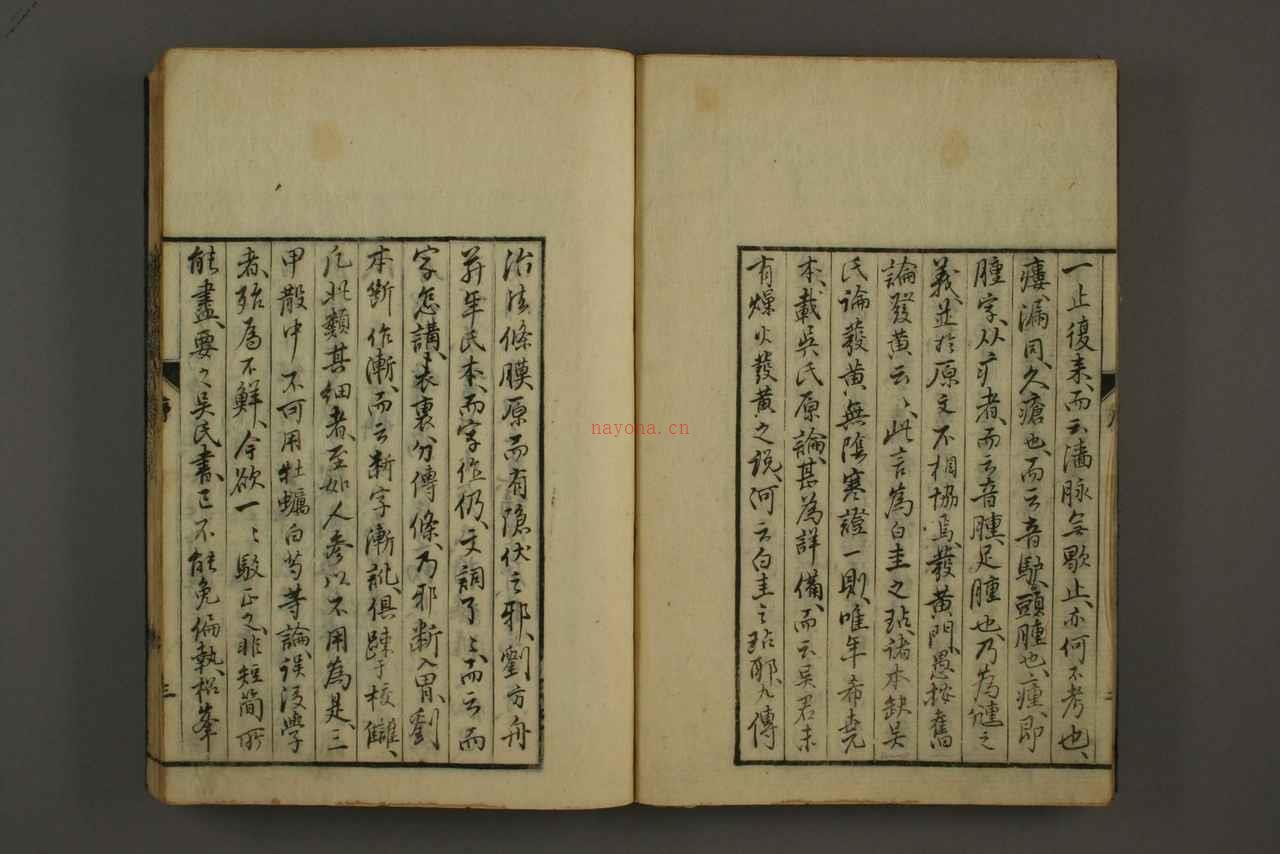 一止復来、而云潘脉無歇止、亦何不考也、
瘻、漏同、久瘡也、而云音馱、頭腫也、瘇、即
腫字、从疒者、而云音腫、足腫也、乃為㾽之
義、並於原文不相協焉、發黄門、愚按舊
論發黄云々、此言為白圭之玷、諸本缺吳
氏論發黄無陰寒證一則、唯年希堯
本、載吳氏原論、甚為詳備、而云吳君未
有燥火發黄之説、何云白圭之玷耶、九傳
治法條、膜原而有隐伏之邪、劉方舟
并年氏本、而字作仍、文詞了々、而云而
字怎講、表裏分傳條、乃邪漸入胃、劉
本漸作漸、而云漸字漸訛、俱踈于校讎、
凢此類其细者、至如人參以不用為是、三
甲散中不可用牡蠣白芍等論、误後學
者、殆為不鮮、今欲一々駁正之、非短簡所
能盡、要之吳氏書、已不能免偏執、松峯
序
三
nayona.cn